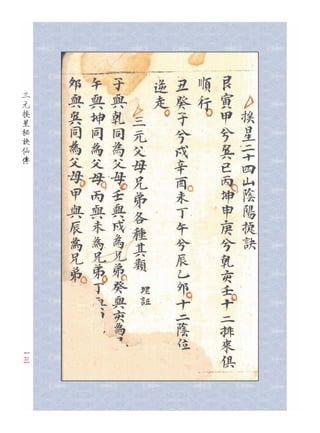 挨星二十四山陰陽挺訣
艮寅甲兮巽巳丙坤申庚兮乾亥壬十二排來俱
順行
丑癸子兮戍辛酉未丁午兮辰乙夘十二陰位
逆走
三元父母兄弟各種其類 理証
子與乾同為父母壬與戍為兄弟癸與亥為
午與坤同為父母丙與未為兄弟丁
夘與巽同為父母甲與辰為兄弟
三元挨星秘訣仙傳
一三